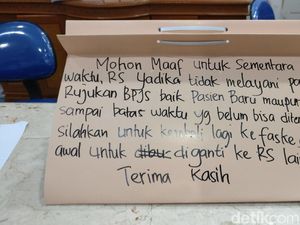 Mohon Maaf untuk Sementara
waktu, RS Yadika tidak melayani pa
Rujukan BPJS baik Pasien Baru maupun
sampai batas waktu yg belum bisa diten
silahkan untuk kembali lagi ke faske
awal untuk dibuc diganti ke RS lai
Terima Kasih
detikcom